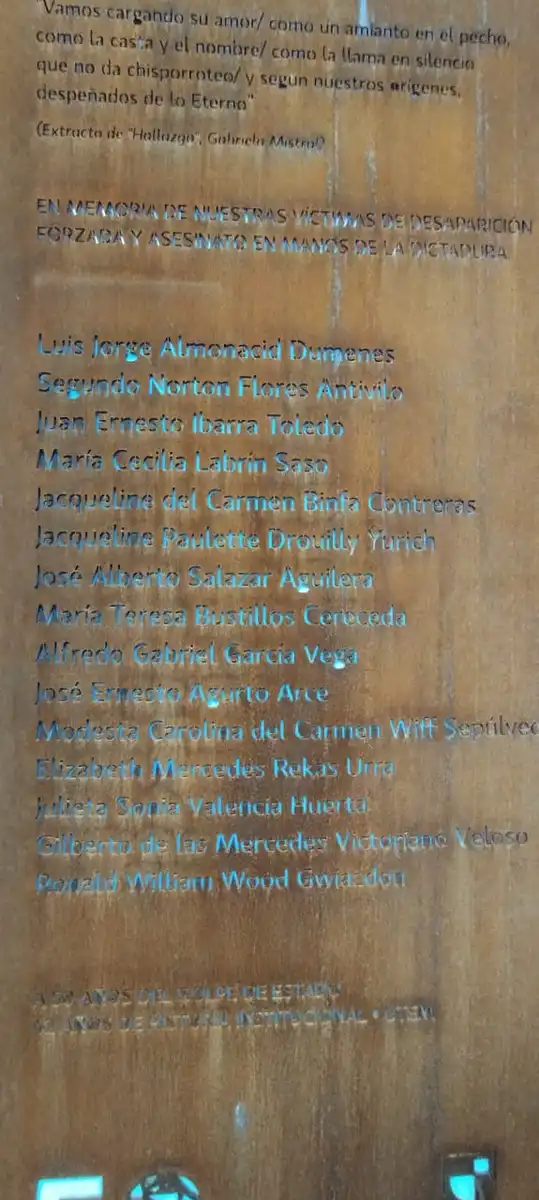 "Vamos cargando su amor/ como un amianto en el pecho,
como la casta y el nombre/ como la llama en silencio
que no da chisporroteo/ y según nuestros orígenes,
despeñados de lo Eterno"
(Extracto de "Hallazgo", Gabriela Mistral)
EN MEMORIA DE NUESTRAS VÍCTIMAS DE DESAPARICIÓN
FORZADA Y ASESINATO EN MANOS DE LA DICTADURA
Luis Jorge Almonacid Dumenes
Segundo Norton Flores Antivilo
Juan Ernesto Ibarra Toledo
María Cecilia Labrín Saso
Jacqueline del Carmen Binfa Contreras
Jacqueline Paulette Drouilly Yurich
José Alberto Salazar Aguilera
María Teresa Bustillos Cereceda
Alfredo Gabriel García Vega
José Ernesto Agurto Arce
Modesta Carolina del Carmen Wiff Sepúlved
Elizabeth Mercedes Rekas Urra
Julieta Sonia Valencia Huerta
Gilberto de las Mercedes Victoriano Veloso
Ronald William Wood Gwiazdon
A 50 AÑOS DEL GOLPE DE ESTADO
AÑOS DE INSTITUCIONAL • UTEM